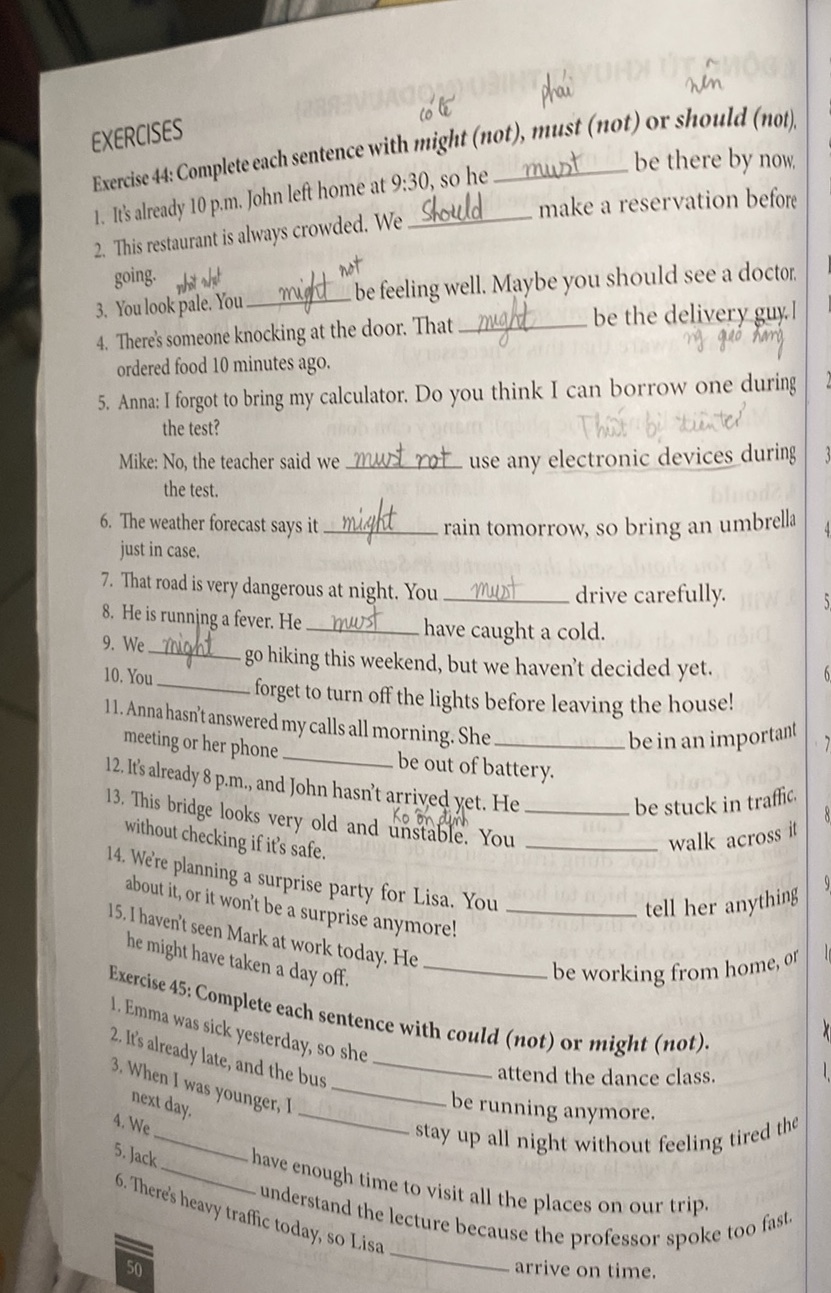 có lẽ phải nên
EXERCISES
Exercise 44: Complete each sentence with might (not), must (not) or should (not).
1. It's already 10 p.m. John left home at 9:30, so he must be there by now.
2. This restaurant is always crowded. We Should make a reservation before
going.
3. You look pale. You might not be feeling well. Maybe you should see a doctor.
4. There's someone knocking at the door. That might be the delivery guy. I
ordered food 10 minutes ago.
ng giao hàng
5. Anna: I forgot to bring my calculator. Do you think I can borrow one during
the test?
Thiết bị
Mike: No, the teacher said we must not use any electronic devices during
the test.
6. The weather forecast says it might rain tomorrow, so bring an umbrella
just in case.
7. That road is very dangerous at night. You must drive carefully.
8. He is running a fever. He must have caught a cold.
9. We might go hiking this weekend, but we haven't decided yet.
10. You ________ forget to turn off the lights before leaving the house!
11. Anna hasn't answered my calls all morning. She ________ be in an important
meeting or her phone ________ be out of battery.
12. It's already 8 p.m., and John hasn't arrived yet. He ________ be stuck in traffic.
ko ổn định
13. This bridge looks very old and unstable. You ________ walk across it
without checking if it's safe.
14. We're planning a surprise party for Lisa. You ________ tell her anything
about it, or it won't be a surprise anymore!
15. I haven't seen Mark at work today. He ________ be working from home, or
he might have taken a day off.
Exercise 45: Complete each sentence with could (not) or might (not).
1. Emma was sick yesterday, so she ________ attend the dance class.
2. It's already late, and the bus ________ be running anymore.
3. When I was younger, I ________ stay up all night without feeling tired the
next day.
4. We ________ have enough time to visit all the places on our trip.
5. Jack ________ understand the lecture because the professor spoke too fast.
6. There's heavy traffic today, so Lisa ________ arrive on time.
50